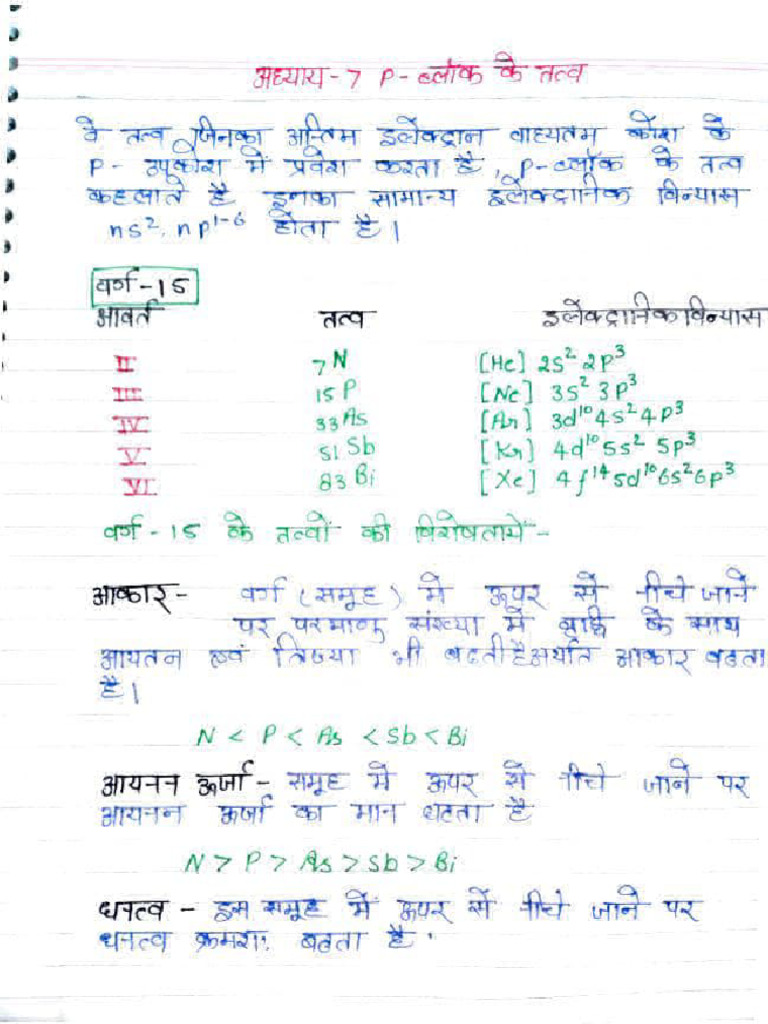 अध्याय-7 P-ब्लॉक के तत्व
वे तत्व जिनका अन्तिम इलेक्ट्रान वाह्यतम कोश के
P- उपकोश में प्रवेश करता है, p-ब्लॉक के तत्व
कहलाते है इनका सामान्य इलेक्ट्रानिक विन्यास
ns², np¹⁻⁶ होता है।
वर्ग-15
आवर्त तत्व इलेक्ट्रानिक विन्यास
II ₇N [He] 2s² 2p³
III ₁₅P [Ne] 3s² 3p³
IV ₃₃As [Ar] 3d¹⁰ 4s² 4p³
V ₅₁Sb [Kr] 4d¹⁰ 5s² 5p³
VI ₈₃Bi [Xe] 4f¹⁴ 5d¹⁰ 6s² 6p³
वर्ग-15 के तत्वों की विशेषतायें-
आकार- वर्ग (समूह) में ऊपर से नीचे जाने
पर परमाणु संख्या में वृद्धि के साथ
आयतन एवं त्रिज्या भी बढती है अर्थात आकार बढता
है।
N < P < As < Sb < Bi
आयनन ऊर्जा- समूह में ऊपर से नीचे जाने पर
आयनन ऊर्जा का मान घटता है
N > P > As > Sb > Bi
घनत्व - इस समूह में ऊपर से नीचे जाने पर
घनत्व क्रमश: बढ़ता है।